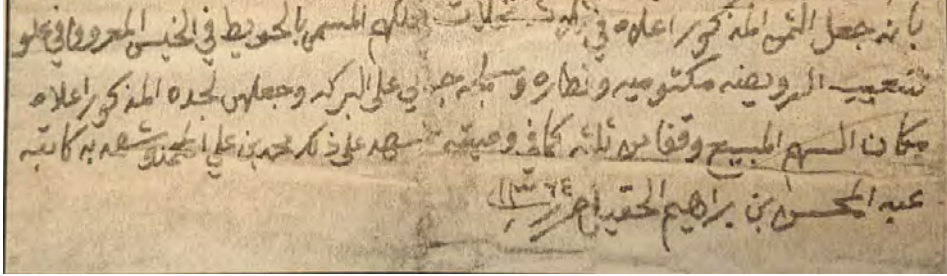 بانه جعل الثمن المذكور اعلاه في ثلاث نخلات بملكهم المسمى بالحويط في الخيس المعروف في علو
شعيب مكتوميه ونصاره جنوبي على البركه وجعلهن لجده المذكور اعلاه
مكان السهم المبيع وقفا من ثلثه كما في وصيته شهد على ذلك محمد بن علي شهد به كاتبه
عبد المحسن بن براهيم الحقيل حرر ١٣٦٤